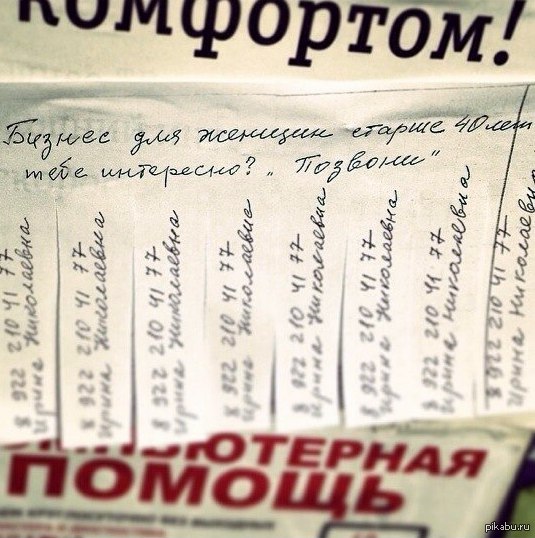 комфортом!
Бизнес для женщин старше 40 лет
тебе интересно? „Позвони"
8 922 210 41 77
Ирина Николаевна
8 922 210 41 77
Ирина Николаевна
8 922 210 41 77
Ирина Николаевна
8 922 210 41 77
Ирина Николаевна
8 922 210 41 77
Ирина Николаевна
8 922 210 41 77
Ирина Николаевна
8 922 210 41 77
Ирина Николаевна
8 922 210 41 77
Ирина Николаевна
КОМПЬЮТЕРНАЯ
ПОМОЩЬ
pikabu.ru